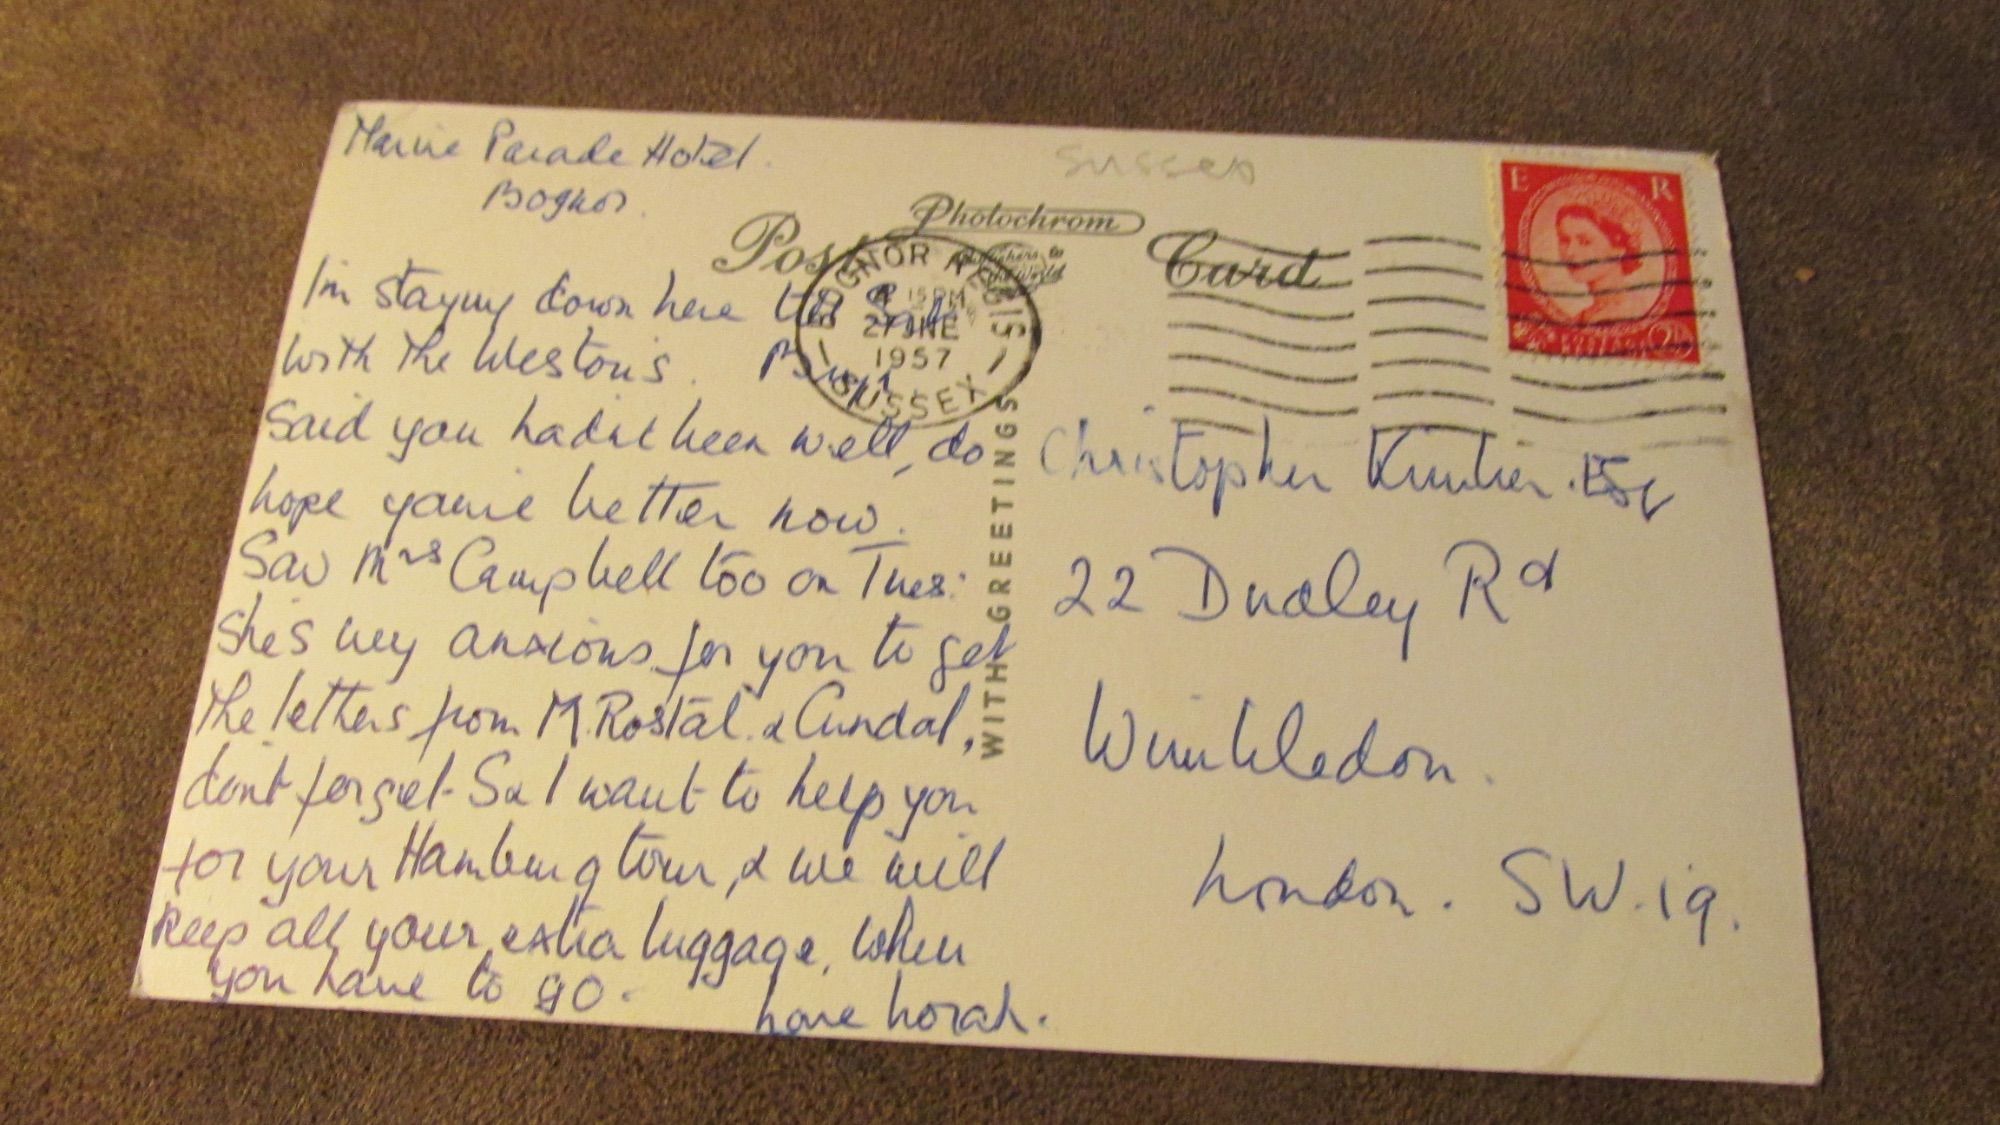 Marine Parade Hotel.
Bognor.
Sussex
E R
Photochrom
Post Card
BOGNOR REGIS
15 PM
27 JNE
1957
SUSSEX
WITH GREETINGS
I'm staying down here till
with the Weston's.
said you hadnt been well, do
hope you're better now.
Saw Mrs Campbell too on Tues:
She's very anxious for you to get
the letters from M. Rostal & Cundal,
dont forget - S & I want to help you
for your Hamburg tour, & we will
keep all your extra luggage, when
you have to go.
Love Norah.
Christopher Esq
22 Dudley Rd
Wimbledon.
London. S W. 19.